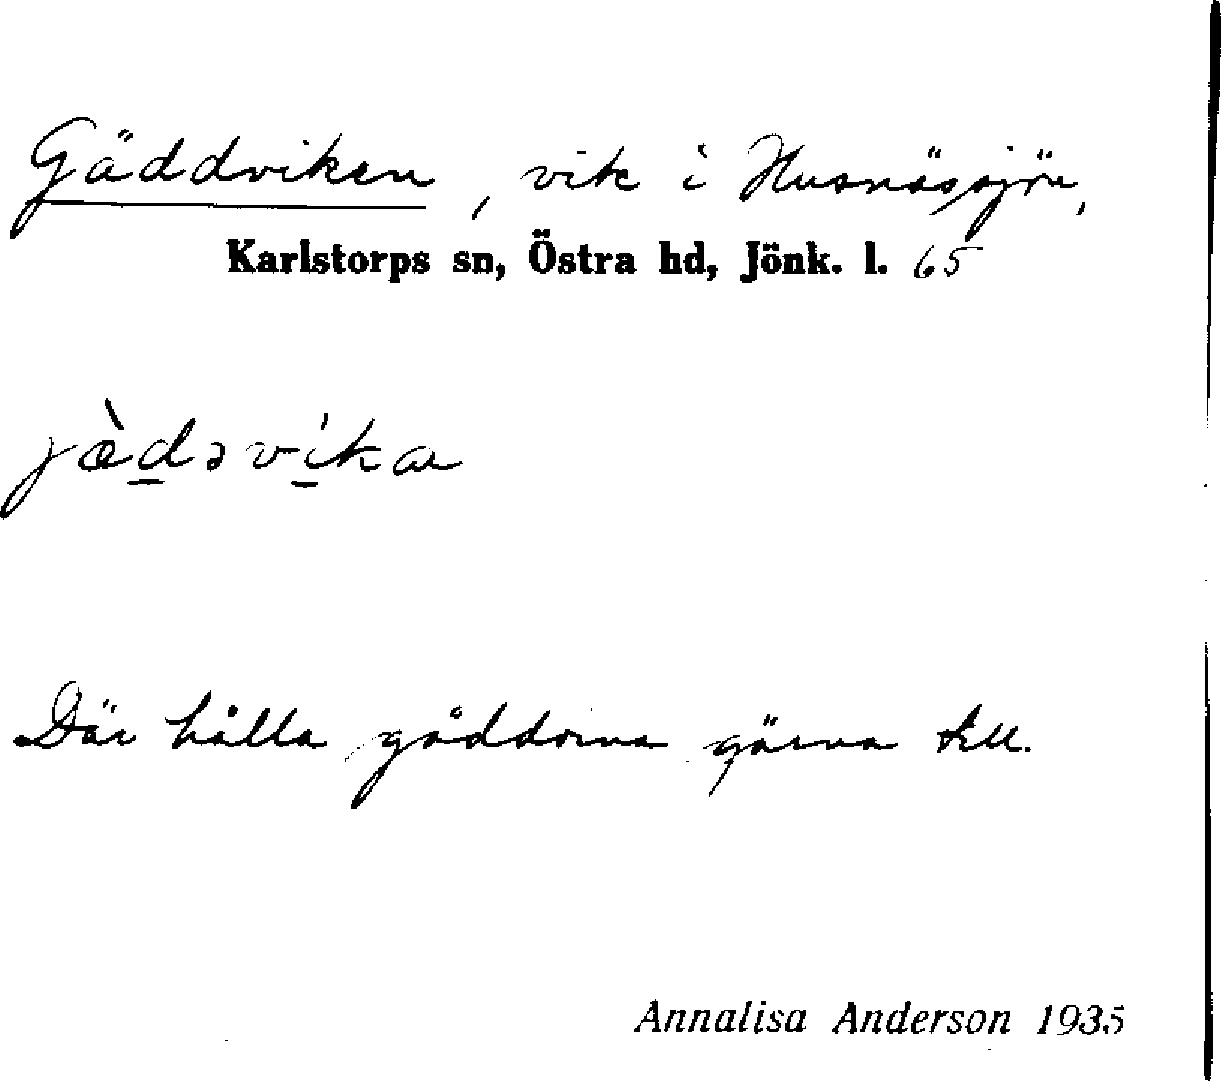 Gäddviken, vik i Husnässjön,
Karlstorps sn, Östra hd, Jönk. l. 65
jæ̀d̲əvi̲̍ka
Där hålla gäddorna gärna till.
Annalisa Anderson 1935